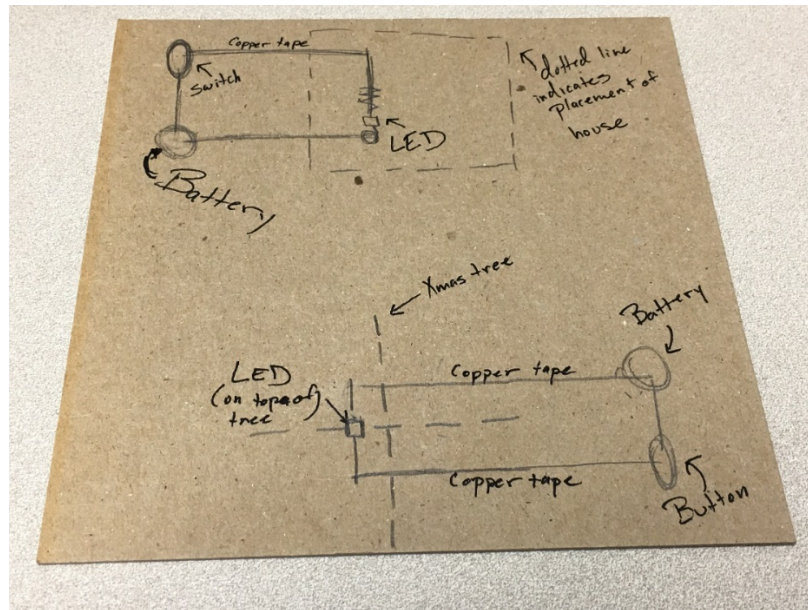 Copper tape
Switch
LED
Battery
dotted line
indicates
placement of
house
Xmas tree
Battery
LED
(on top of)
tree
Copper tape
Copper tape
Button